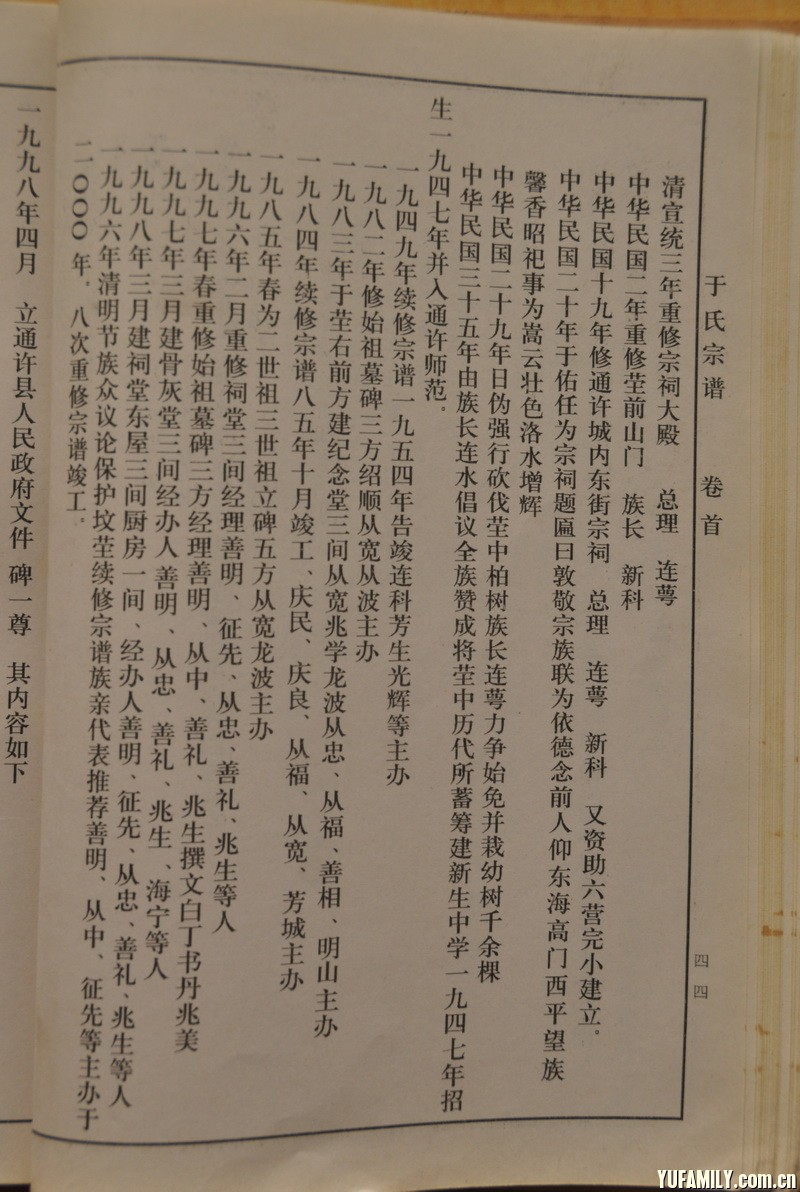 于氏宗谱 卷首 四四
清宣统三年重修宗祠大殿 总理 连萼
中华民国二年重修茔前山门 族长 新科
中华民国十九年修通许城内东街宗祠 总理 连萼 新科 又资助六营完小建立。
中华民国二十年于佑任为宗祠题匾曰敦敬宗族联为依德念前人仰东海高门西平望族
馨香昭祀事为嵩云壮色洛水增辉
中华民国二十九年日伪强行砍伐茔中柏树族长连萼力争始免并栽幼树千余棵
中华民国三十五年由族长连水倡议全族赞成将茔中历代所蓄筹建新生中学一九四七年招
生一九四七年并入通许师范。
一九四九年续修宗谱一九五四年告竣连科芳生光辉等主办
一九八二年修始祖墓碑三方绍顺从宽从波主办
一九八三年于茔右前方建纪念堂三间从宽兆学龙波从忠、从福、善相、明山主办
一九八四年续修宗谱八五年十月竣工、庆民、庆良、从福、从宽、芳城主办
一九八五年春为二世祖三世祖立碑五方从宽龙波主办
一九九六年二月重修祠堂三间经理善明、征先、从忠、善礼、兆生等人
一九九七年春重修始祖墓碑三方经理善明、从中、善礼、兆生撰文白丁书丹兆美
一九九七年三月建骨灰堂三间经办人善明、从忠、善礼、兆生、海宁等人
一九九八年三月建祠堂东屋三间厨房一间、经办人善明、征先、从忠、善礼、兆生等人
一九九六年清明节族众议论保护坟茔续修宗谱族亲代表推荐善明、从中、征先等主办于
二〇〇〇年，八次重修宗谱竣工。
一九九八年四月 立通许县人民政府文件 碑一尊 其内容如下
YUFAMILY.com.cn